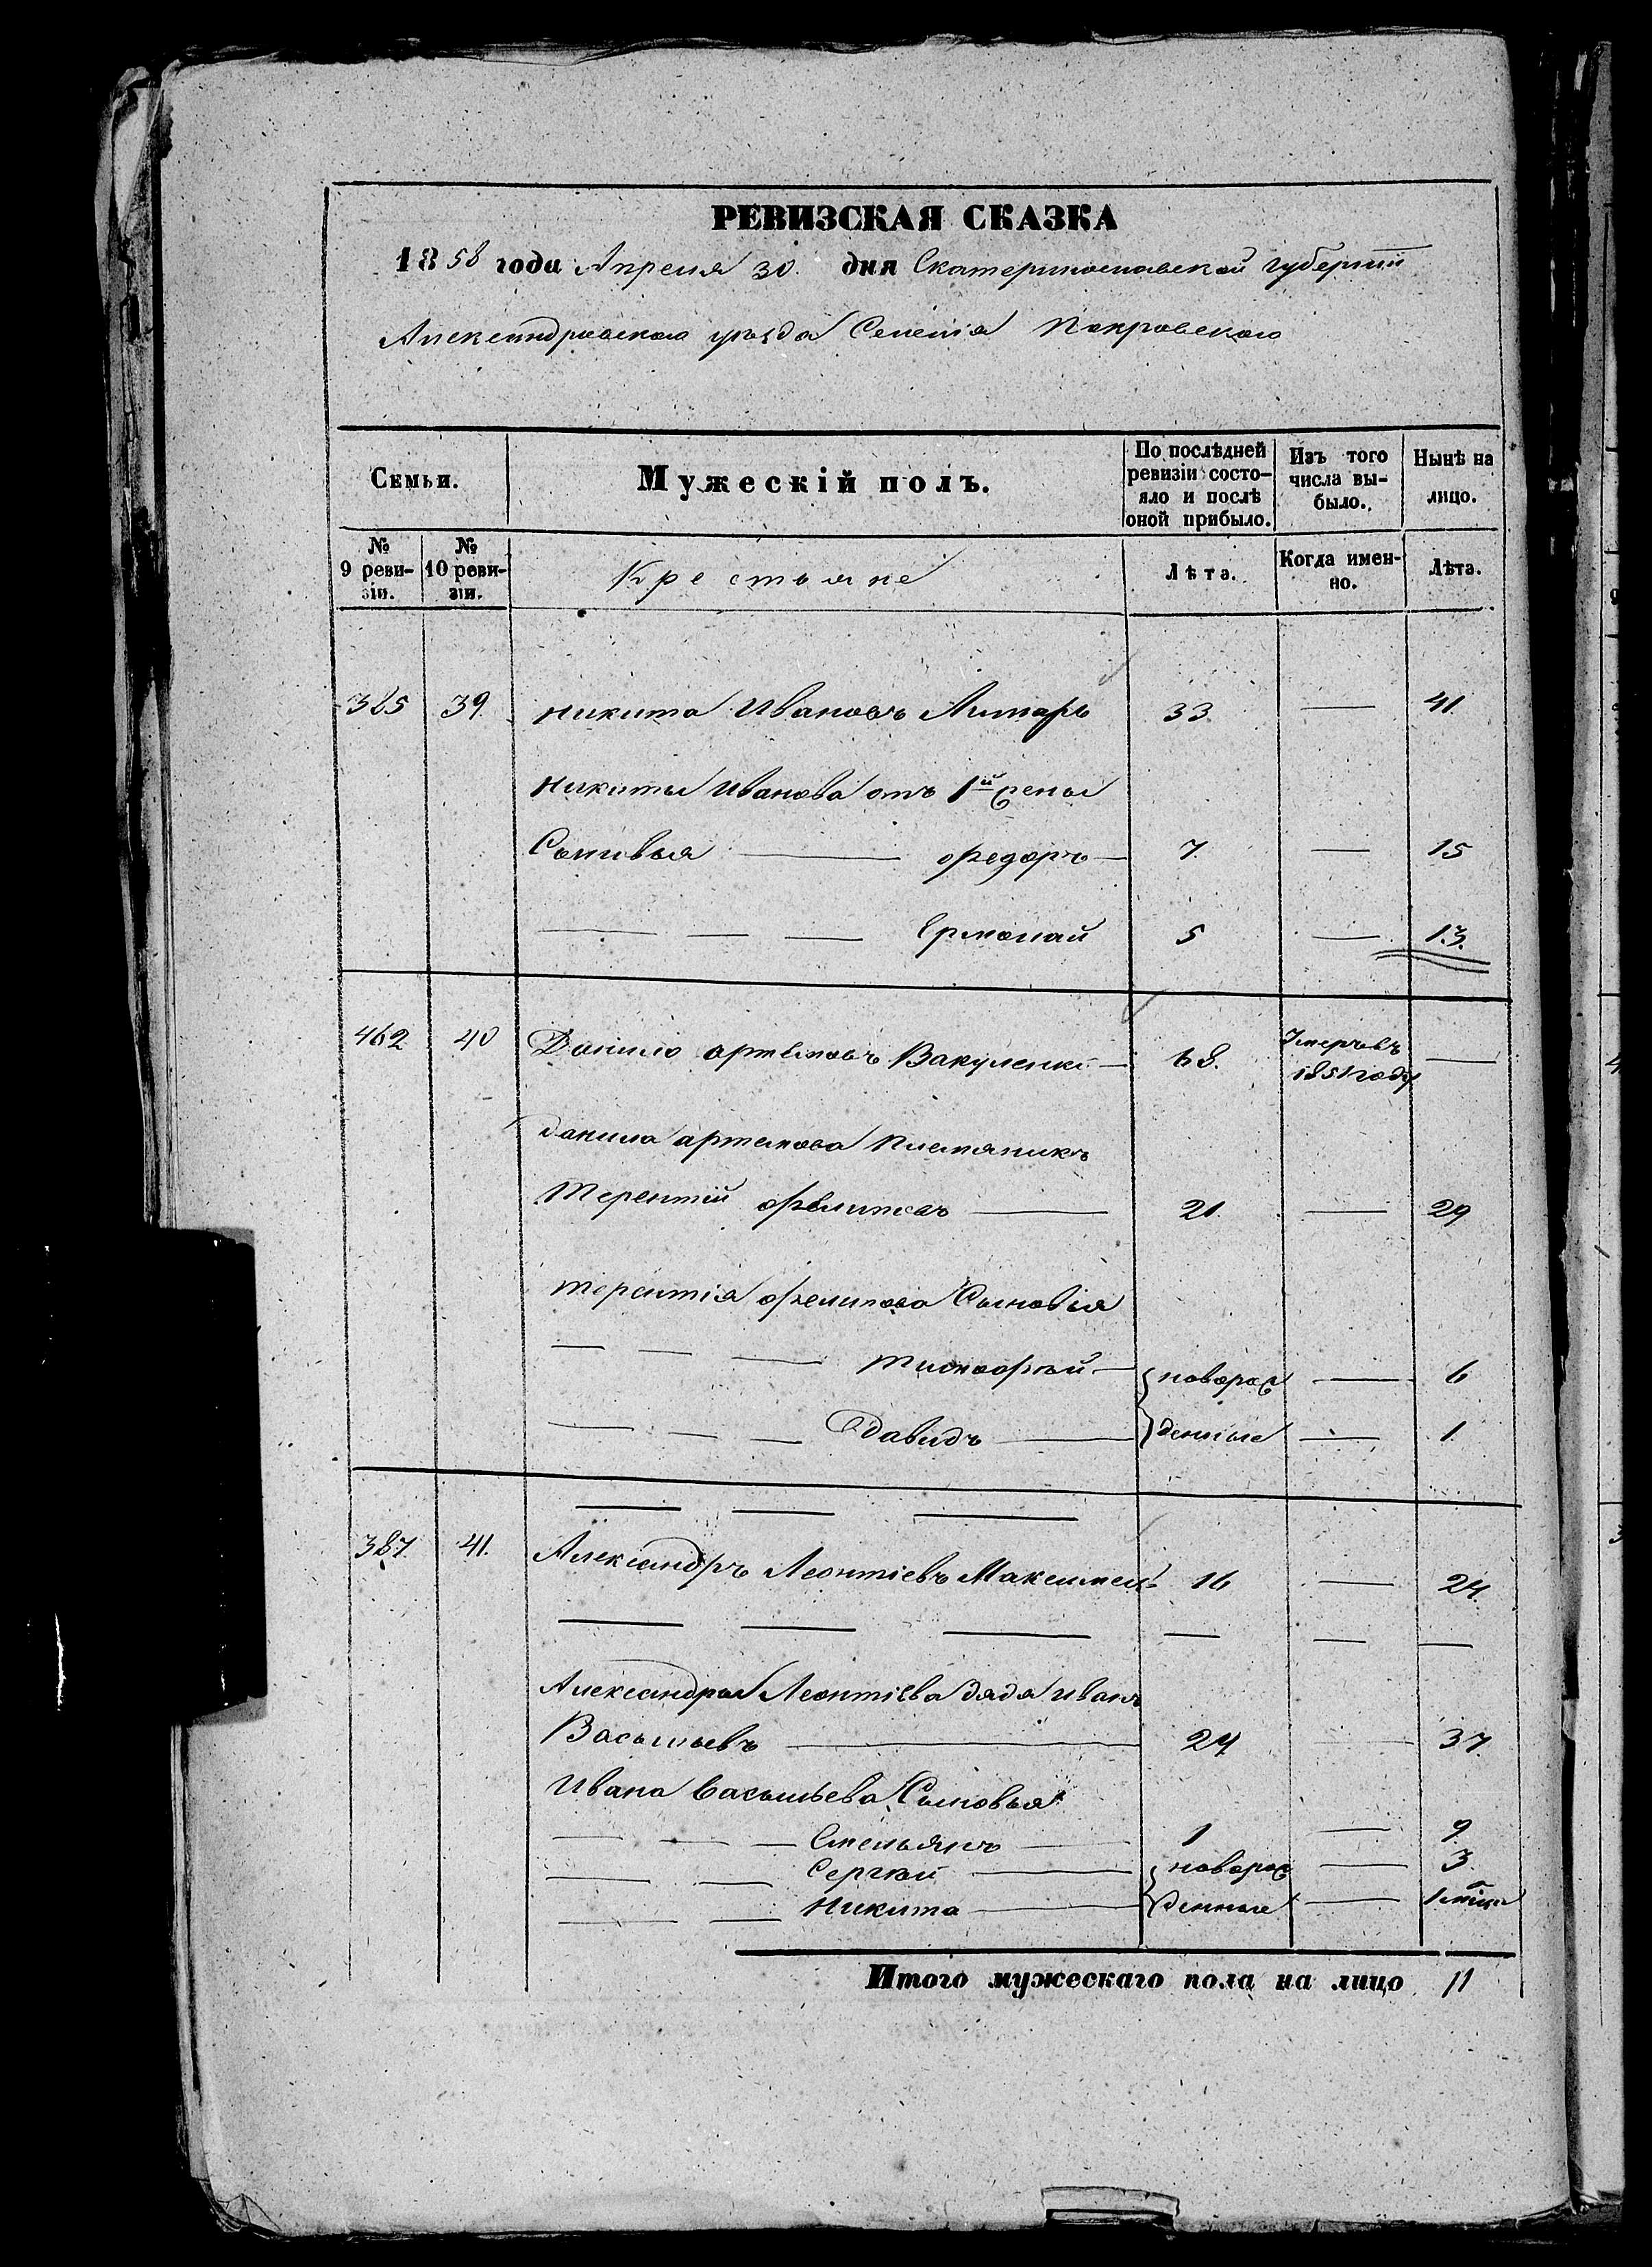 РЕВИЗСКАЯ СКАЗКА
1858 года Апреля 30. дня Екатеринославской губернiи
Александровского уѣзда Селенiя Покровского
Семьи.
Мужескiй полъ.
По послѣдней ревизiи состо-
яло и послѣ
оной прибыло.
Изъ того
числа вы-
было.
Нынѣ на
лицо.
№
9 реви-
зiи.
№
10 реви-
зiи.
Крестьяне
Лѣта.
Когда имен-
но.
Лѣта.
385 39. Никита Ивановъ Литарь 33. — 41.
Никиты Иванова отъ 1й жены
Сыновья — Федоръ — 7. — 15
— — — Ермолай 5 — 13.
462 40 Данило Артемовъ Вакуленко — 68. Умеръ въ
1851 году —
Данила Артемова Племяникъ
Терентiй Филиповъ — 21. — 29
Терентiя Филипова Сыновiя
— — — Тимофѣй — новорож — 6
— — — Давидъ — денные — 1.
— — —
387. 41. Александръ Леонтiевъ Максимец 16 — 24.
— — — — — —
Александра Леонтiева дядя Иванъ
Васильевъ — 29 — 37.
Ивана Васильева Сыновья
— — — Емельянъ — 1 — 9.
— — Сергѣй — новорож — 3.
— — Никита — денные — 1 мѣця
Итого мужескаго пола на лицо 11